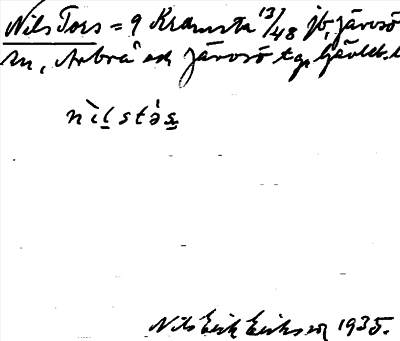 Nils Tors = 9 Kramsta 13/48 jb, Järvsö
sn, Arbrå och Järvsö tg, Gävleb. l
nìlstás
Nils Erik Eriksson 1935.